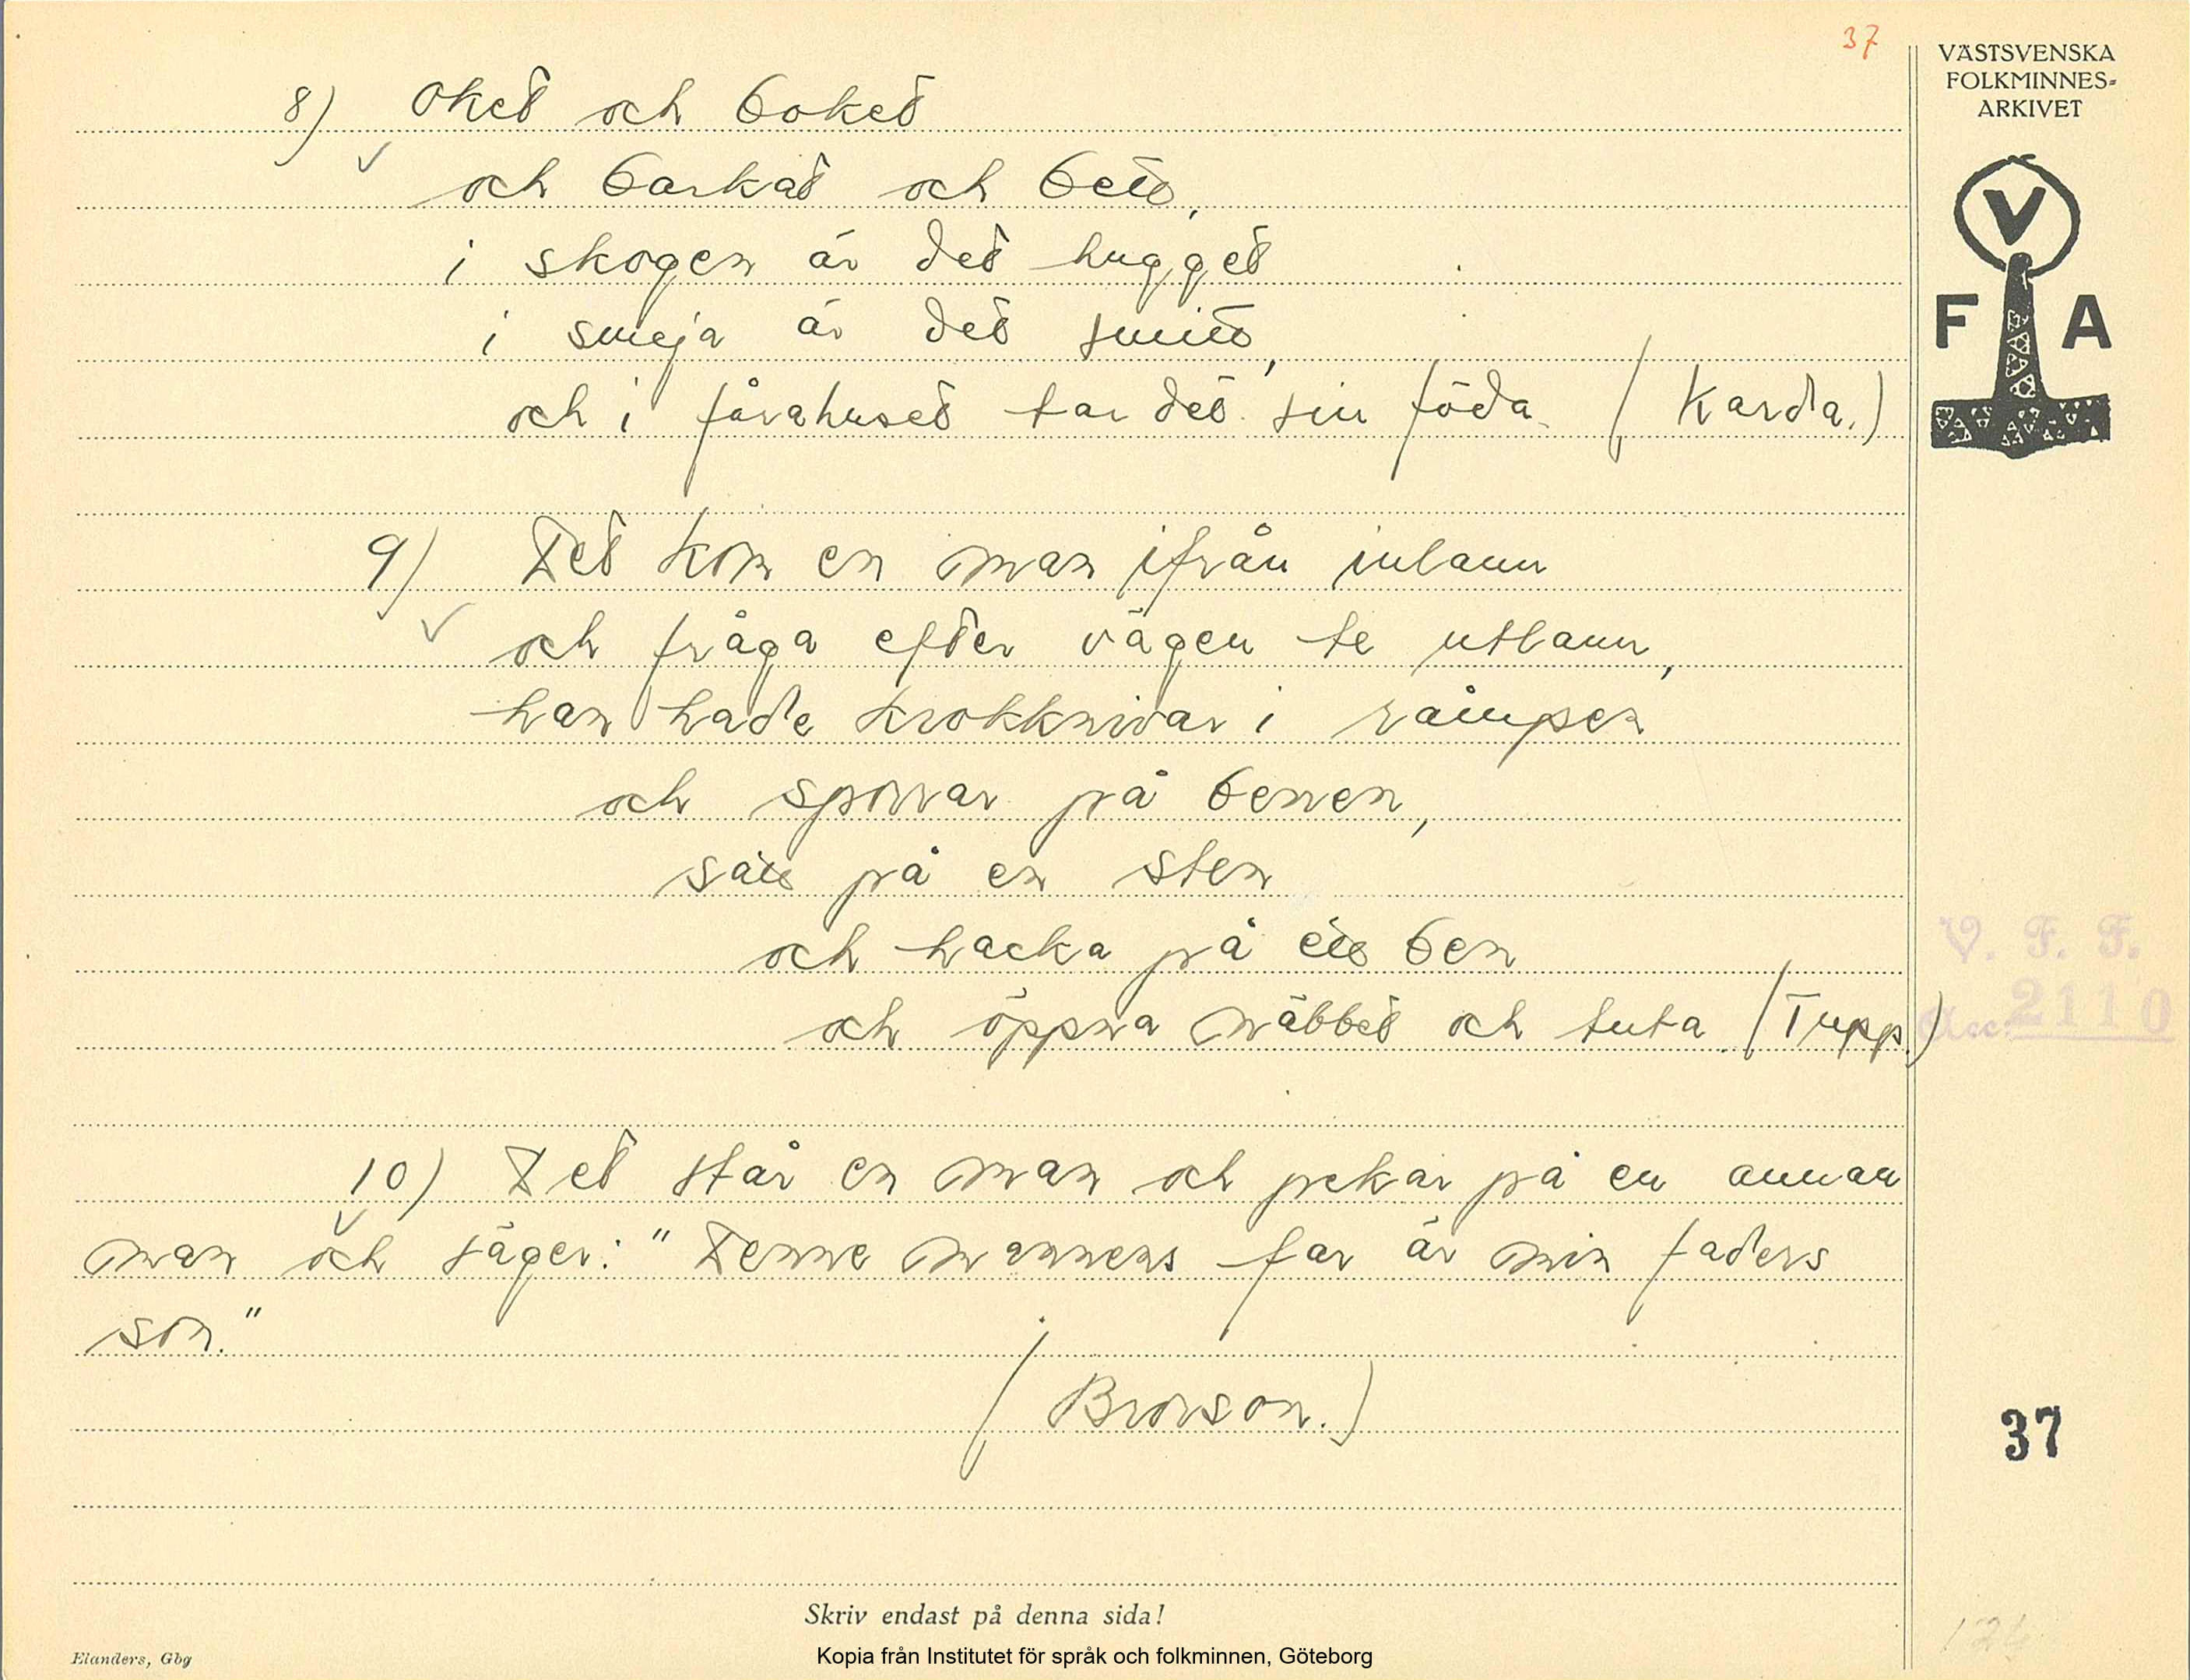 37
VÄSTSVENSKA
FOLKMINNES-
ARKIVET
V
F A
8) Oket och boket
och barkat och bett,
i skogen är det hugget
i smeja är det smitt,
och i fårahuset tar det sin föda. (Karda.)
9) Det kom en man ifrån inlann
och fråga efter vägen te utlann,
han hade krokknivar i rämpen
och sporrar på bennen,
satt på en sten
och hacka på ett ben
och öppna näbbet och tuta. (Tupp.)
10) Det står en man och pekar på en annan
man och säger: "Denne mannens far är min faders
son."
(Brorson.)
V. F. F.
Acc. 2110
37
Skriv endast på denna sida!
Kopia från Institutet för språk och folkminnen, Göteborg
Elanders, Gbg